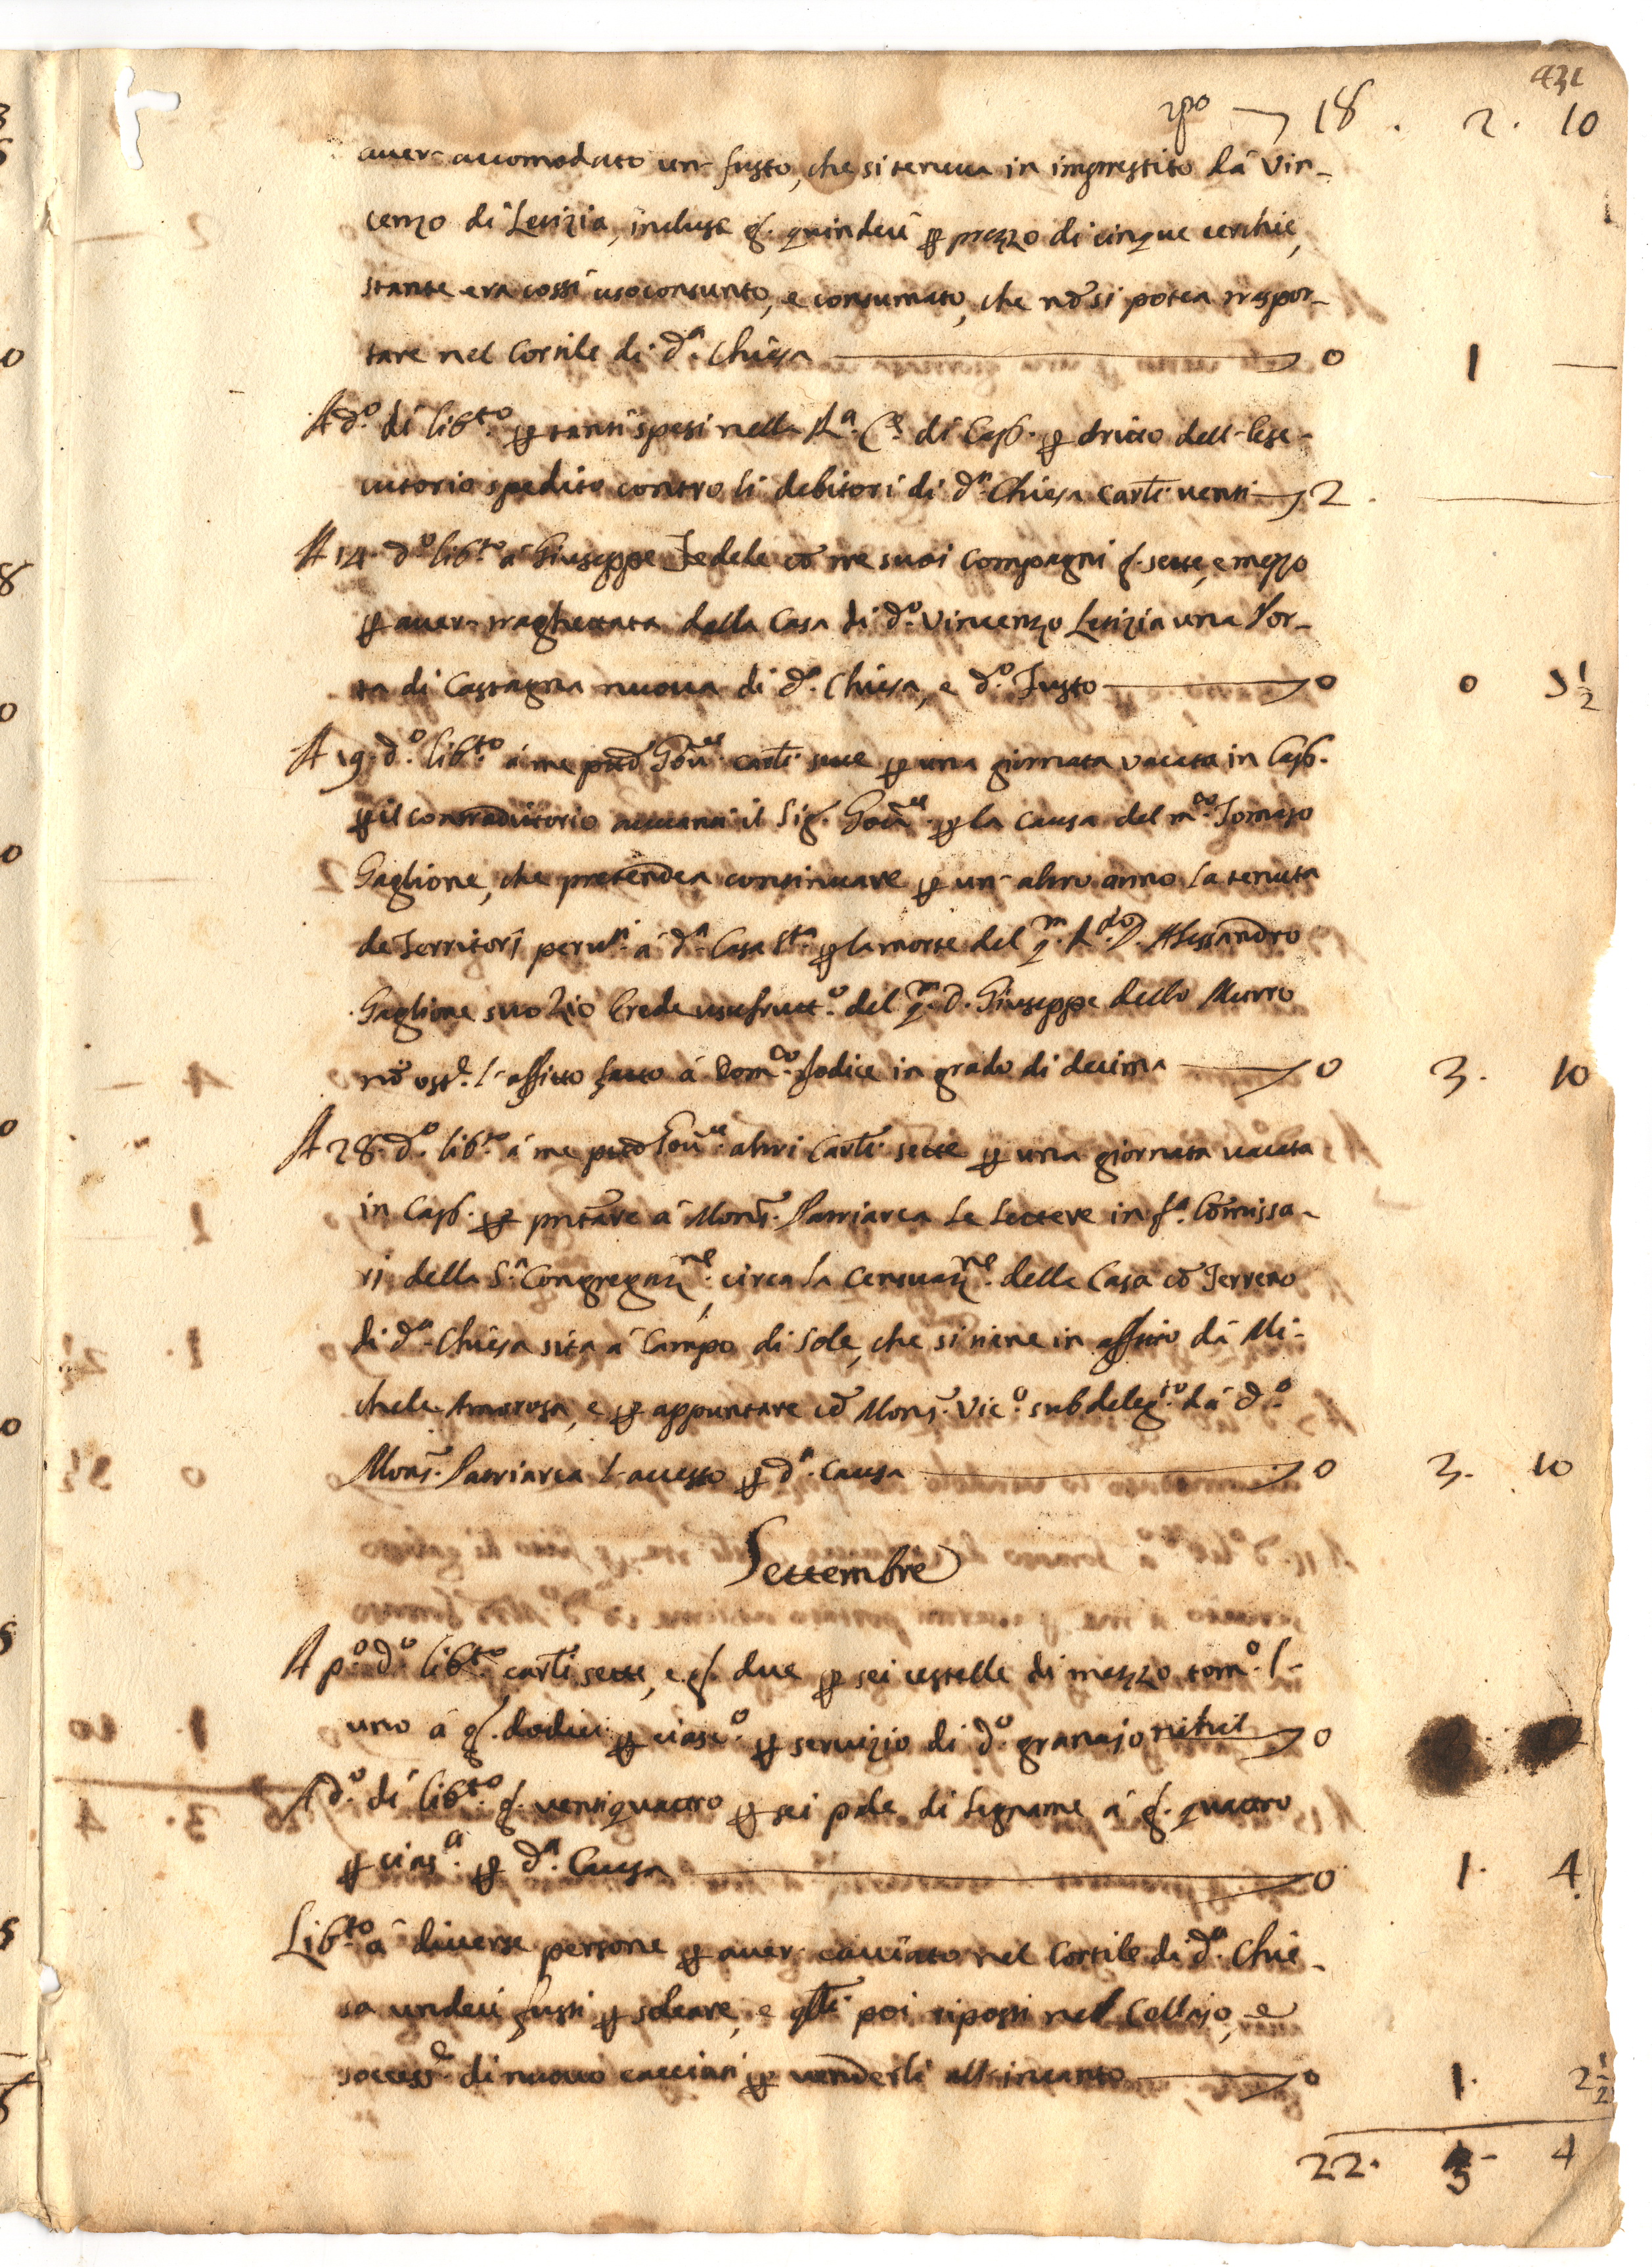 431
rpo 18 . 2 . 10
aver- accomodato un- fusto, che si teneva in imprestito dà Vin-
cenzo di Letizia, incluse g. quindeci p prezzo di cinque cerchie,
stante era cossì usoconsunto, e consumato, che nō si potea traspor-
tare nel Cortile di dª. Chiesa 0 1 —
A dº. di libto. p tanti spesi nella Rª. Cª. di Cap. p dritto dell- Ese-
cutorio spedito contro li debitori di dª. Chiesa carti. venti 2 . —
A 14. dº. libto. à Giuseppe Fedele cō tre suoi Compagni g. sette, e mezzo
p aver- traghettata dalla Casa di dº. Vincenzo Letizia una Por-
ta di Castagna nuova di dª. Chiesa, e dº. Fusto 0 0 7 1/2
A 19. dº. libto. à me pred Govre. carti. sette p una giornata vacata in Cap.
p il contradittorio avvanti il Sig. Govre. p la causa del mco. Tomaso
Gaglione, che pretendea continuare p un- altro anno la tenuta
de Territorj perti. à dª. Casa Sta. p la morte del qm. Rdo. D. Alessandro
Gaglione suo Zio Erede usufrutto. del qm. D. Giuseppe dello Murro
nō ostte. l- affitto fatto à Domco. Iodice in grado di decima 0 3. 10
A 28. dº. libto. à me pred Govre. altri carti. sette p una giornata vacata
in Cap. p pntare à Mons. Patriarca le Lettere in fª. Comissa-
ri della Sª. Congregazne., circa la Censuazne. della Casa cō Terreno
di dª. Chiesa sita à Campo di Sole, che si tiene in affitto dà Mi-
chele Amorosa, e p appuntare cō Mons. Vicº. subdelegto. dà dº.
Mons. Patriarca l- accesso p dª. causa 0 3. 10
Settembre
A pº. dº. libto. carti sette, e g. due p sei cestelle di mezzo tomº. l-
uno à g. dodici p ciascº. p servizio di dº. granajo nihil 0
A dº. di libto. g. ventiquattro p sei pale di Legname à g. quattro
p ciasª. p dª. Causa 0 1. 4
Libto. à diverse persone p aver- cacciato nel Cortile di dª. Chie-
sa undeci fusti p soleare, e qlli poi riposti nel Cellajo, e
successe. di nuovo cacciati p venderli all- incanto 0 1. 2 1/2
22. 3- 4